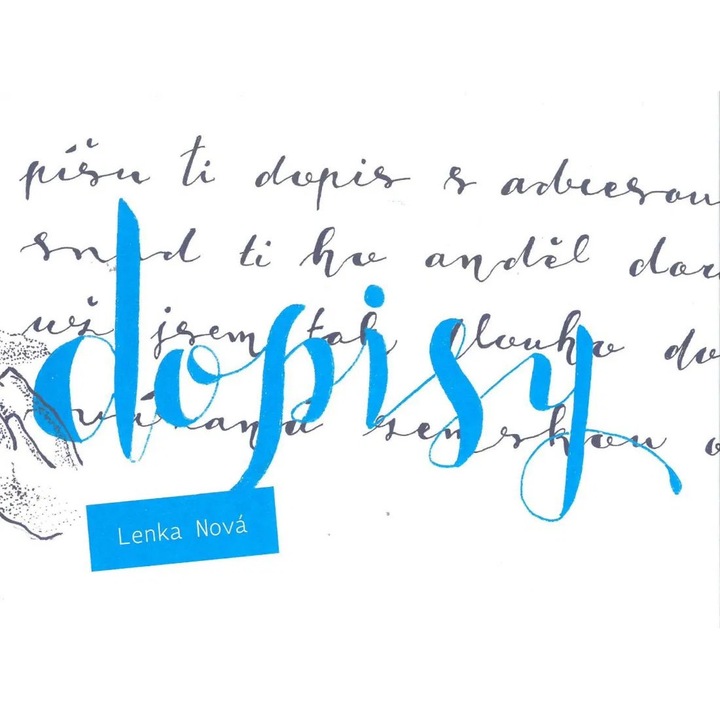 píšu ti dopis s adresou
snad ti ho anděl
už jsem tak dlouho
zemskou
dopisy
Lenka Nová